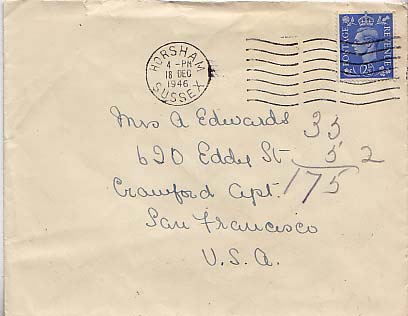 HORSHAM
4 - PM
18 DEC
1946
SUSSEX
POSTAGE
REVENUE
2½D
Mrs A Edwards
620 Eddy St
Crawford Apt.
San Francisco
U.S.A.
35
5 2
175